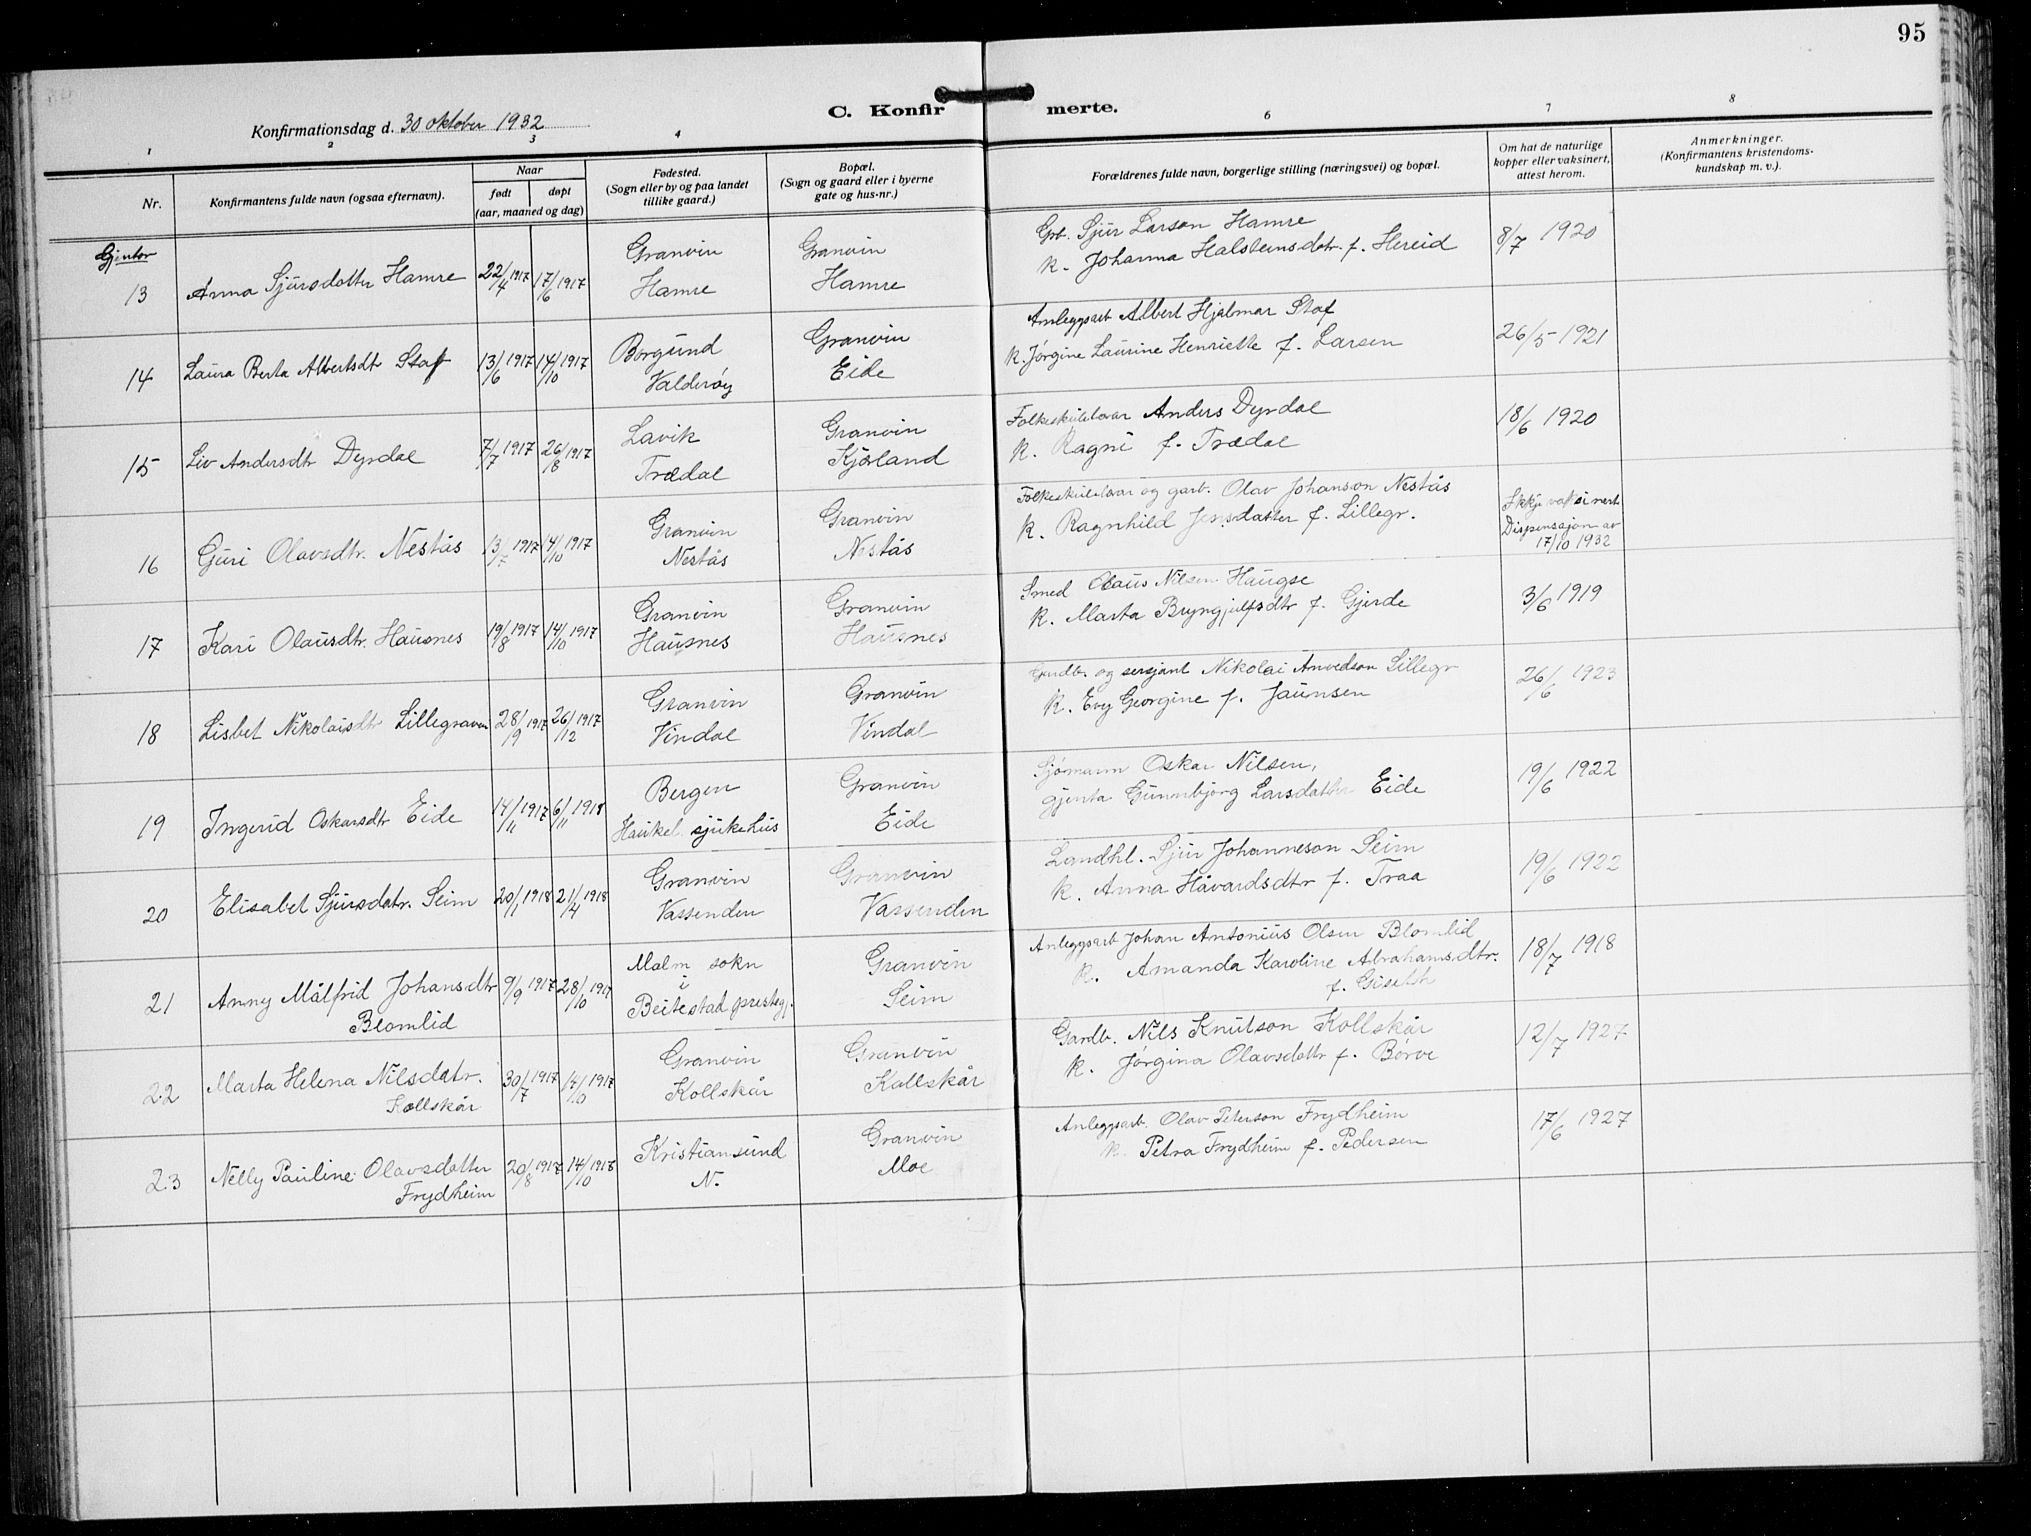 95
C. Konfirmerte.
Konfirmationsdag d. 30 oktober 1932
1 2 3 4 6 7 8
Nr.
Konfirmantens fulde navn (ogsaa efternavn).
Naar
født døpt
(aar, maaned og dag)
Fødested.
(Sogn eller by og paa landet
tillike gaard.)
Bopæl.
(Sogn og gaard eller i byerne
gate og hus-nr.)
Forældrenes fulde navn, borgerlige stilling (næringsvei) og bopæl.
Om hat de naturlige
kopper eller vaksinert,
attest herom.
Anmerkninger.
(Konfirmantens kristendoms-
kundskap m. v.).
Gjintor
13 Anna Sjursdotter Hamre 22/4 1917 17/6 1917
Granvin
Hamre
Granvin
Hamre
Grb. Sjur Larson Hamre
k. Johanna Halsteinsdotr. f. Hereid
8/7 1920
14 Laura Berta Albertsdtr Staf 13/6 1917 14/10 1917
Borgund
Valderøy
Granvin
Eide
Anleggsarb Albert Hjalmar Staf
k. Jørgine Laurine Henriette f. Larsen
26/5-1921
15 Liv Andersdtr Dyrdal 7/7 1917 26/8 1917
Lavik
Trædal
Granvin
Kjærland
Folkeskulelærar Anders Dyrdal
k. Ragni f. Trædal
18/6 1920
16 Guri Olavsdtr. Nestås 13/7 1917 14/10 1917
Granvin
Nestås
Granvin
Nestås
Folkeskulelærar og garb. Olav Johanson Nestås
k. Ragnhild Jensdatter f. Lillegr.
Ikkje vaksinert
Dispensasjon av
17/10 1932
17 Kari Olausdtr. Hausnes 19/8 1917 14/10 1917
Granvin
Hausnes
Granvin
Hausnes
Smed Olaus Nilsen Haugse
k. Marta Bryngjulfsdtr f. Gjerde
3/6 1919
18 Lisbet Nikolaisdtr Lillegraven 28/9 1917 26/12 1917
Granvin
Vindal
Granvin
Vindal
og sersjant Nikolai Anvedson Lillegr
k. Evy Georgine f. Jaunsen
26/6 1923
19 Ingerid Oskarsdtr Eide 14/11 1917 6/11 1918
Bergen
Haukel. sjukehus
Granvin
Eide
Sjømann Oskar Nilsen,
gjenta Gunnbjørg Larsdatter Eide
19/6 1922
20 Elisabet Sjursdatr. Seim 20/1 1918 21/4 1918
Granvin
Vassenden
Granvin
Vassenden
Landhl. Sjur Johanneson Seim
k. Anna Håvardsdtr f. Traa
19/6 1922
21 Anny Målfrid Johansdtr 9/9 1917 28/10 1917
Blomlid
Malm sokn
i
Beitestad prestegj.
Granvin
Seim
Anleggsarb Johan Antonius Olsen Blomlid
k. Amanda Karoline Abrahamsdtr.
18/7 1918
22 Marta Helena Nilsdatr. 30/7 1917 /10 1917
Kollskår
Granvin
Kollskår
Granvin
Kollskår
Gardb. Nils Knutson Kollskår
k. Jørgina Olavsdattr f. Børve
12/7 1927
23 Nelly Pauline Olavsdatter 20/8 1917 14/10 1918
Frydheim
Kristiansund
N.
Granvin
Moe
Anleggsarb. Olav Peterson Frydheim
k. Petra Frydheim f. Pedersen
17/6 1927